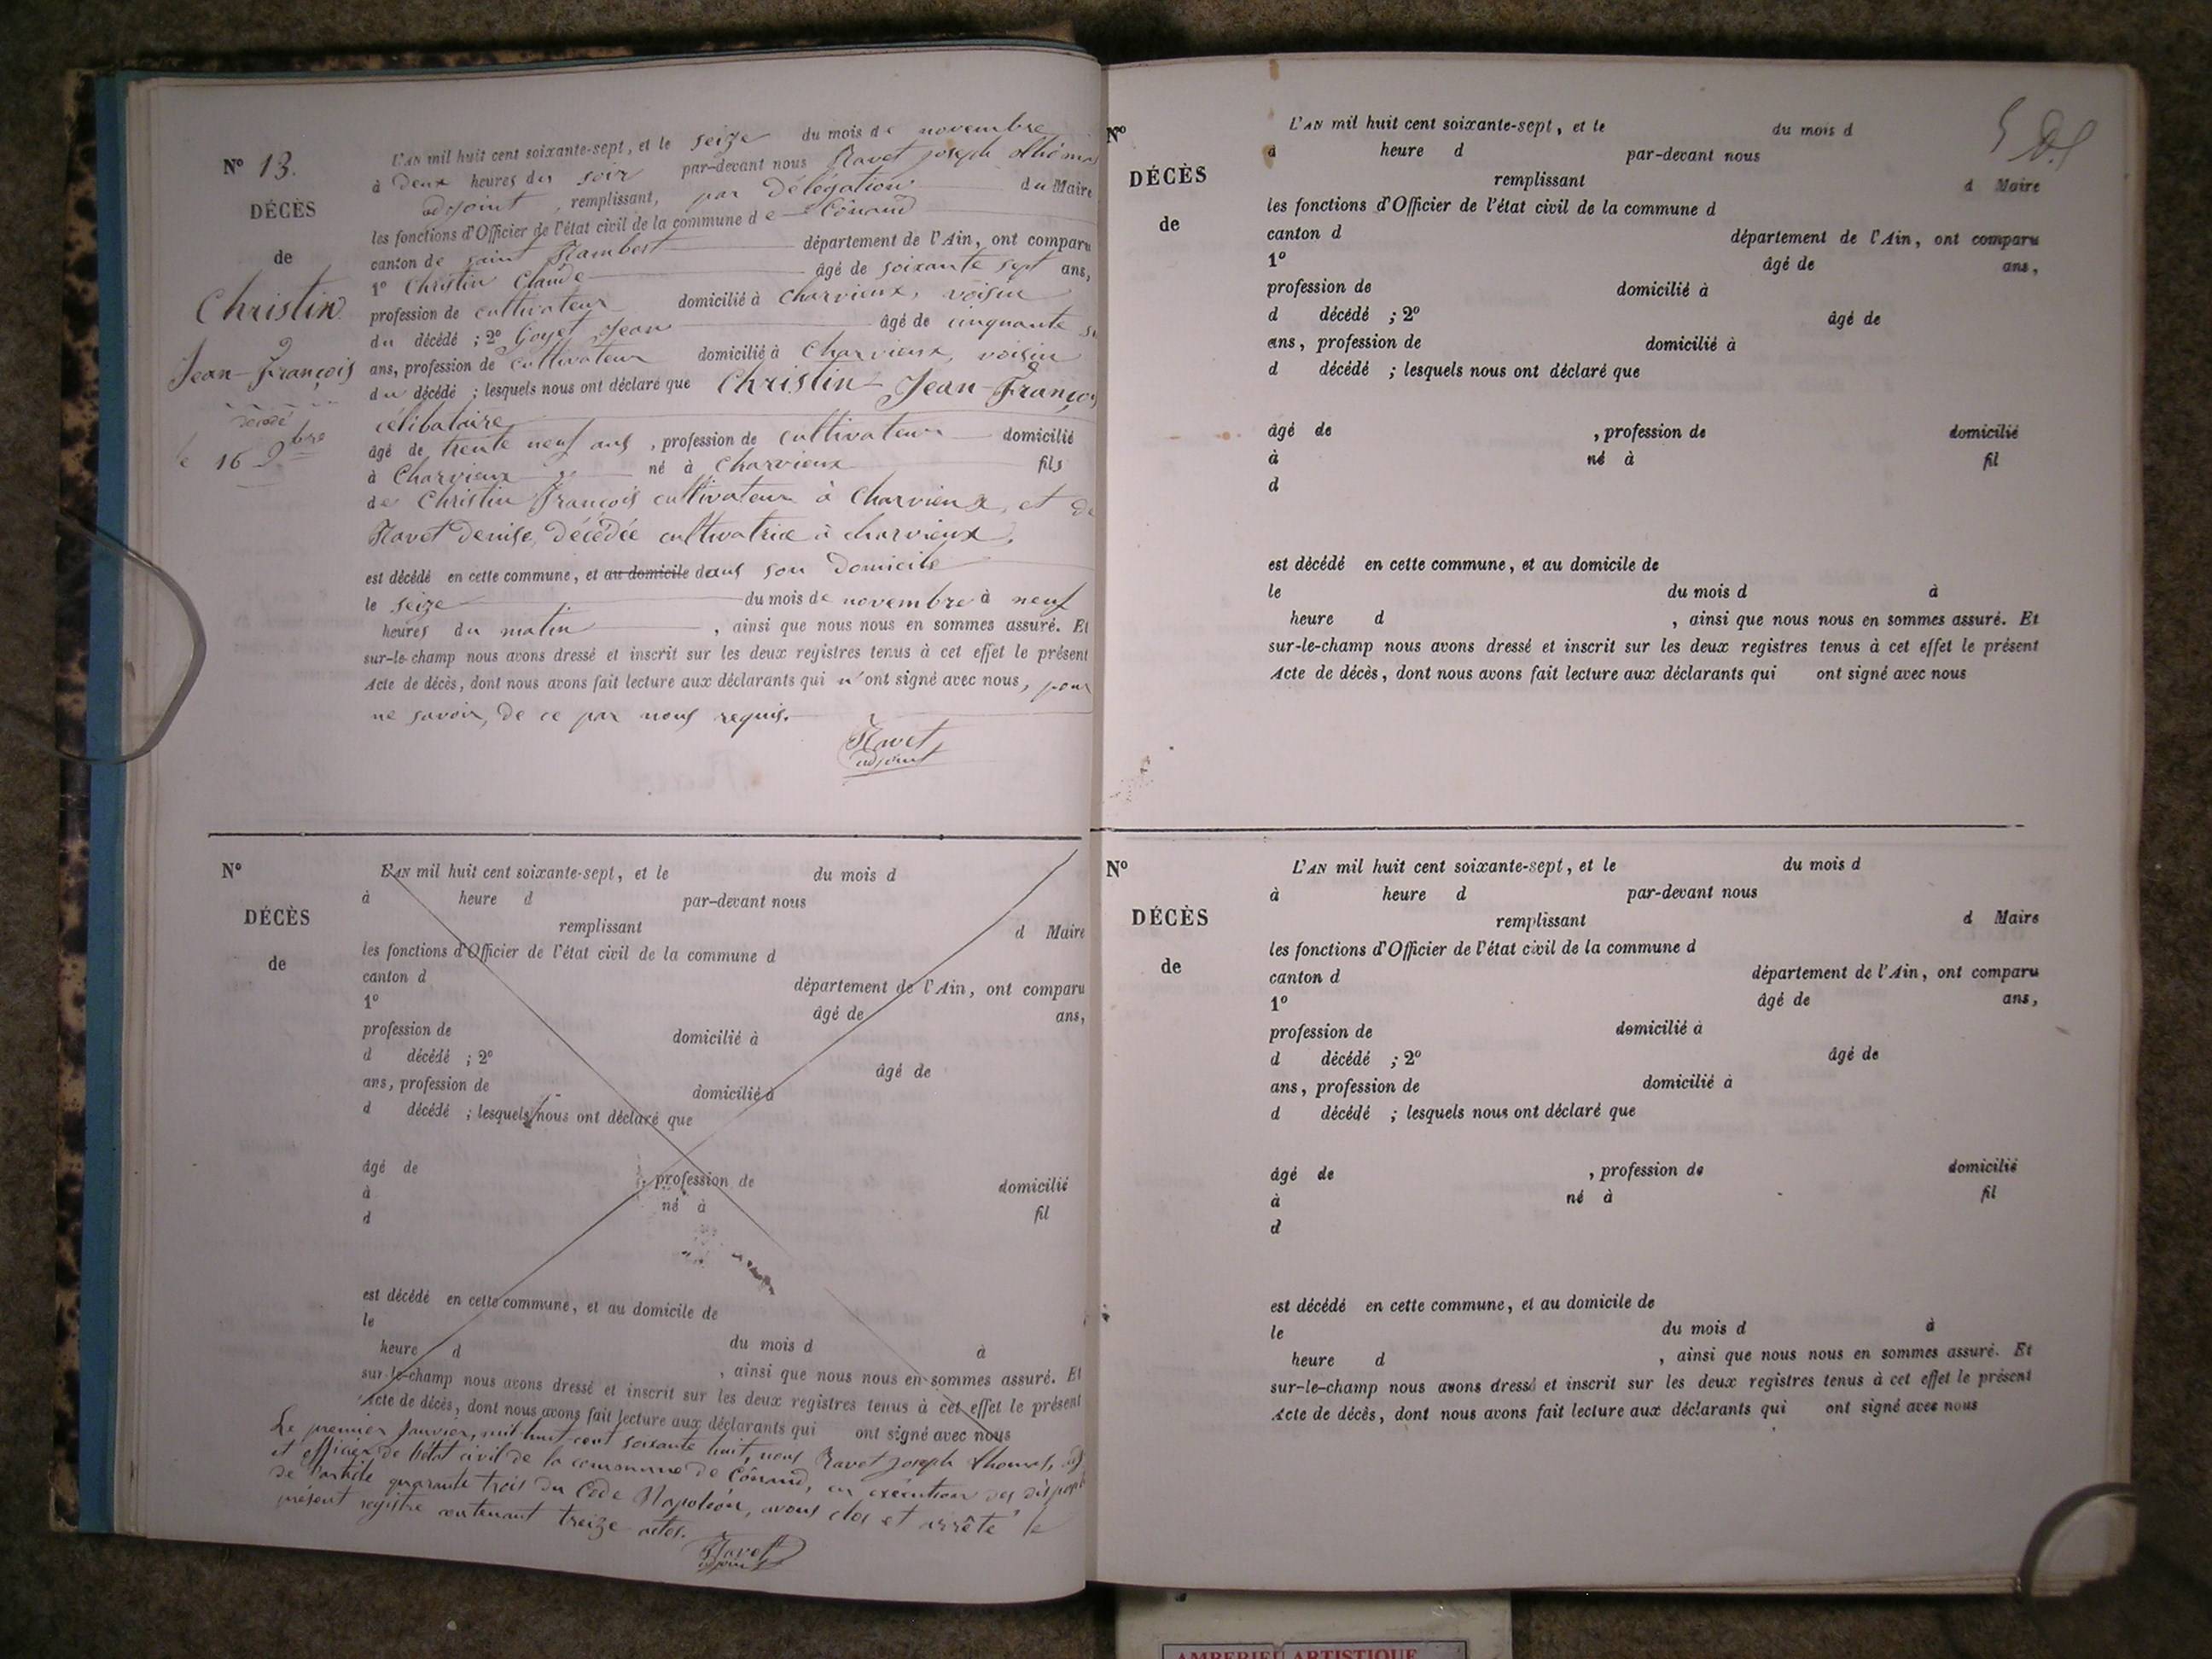 N° 13.
DÉCÈS
de
Christin
Jean-François
décédé
le 16 9bre
L'AN mil huit cent soixante-sept, et le seize du mois de novembre
à deux heures du soir par-devant nous Ravet joseph thomas
adjoint, remplissant, par délégation du Maire
les fonctions d'Officier de l'état civil de la commune de Cônand
canton de saint Rambert département de l'Ain, ont comparu
1° Christin Claude âgé de soixante sept ans,
profession de cultivateur domicilié à Charvieux, voisin
du décédé ; 2° Goyet Jean âgé de cinquante
ans, profession de cultivateur domicilié à Charvieux, voisin
du décédé ; lesquels nous ont déclaré que Christin Jean-François
célibataire
âgé de trente neuf ans, profession de cultivateur domicilié
à Charvieux né à Charvieux fils
de Christin François cultivateur à Charvieux, et de
Ravet Denise, décédée cultivatrice à charvieux,
est décédé en cette commune, et au domicile dans son domicile
le seize du mois de novembre à neuf
heures du matin, ainsi que nous nous en sommes assuré. Et
sur-le-champ nous avons dressé et inscrit sur les deux registres tenus à cet effet le présent
Acte de décès, dont nous avons fait lecture aux déclarants qui n'ont signé avec nous, pour
ne savoir, de ce par nous requis.
Ravet
adjoint
N°
DÉCÈS
de
L'AN mil huit cent soixante-sept, et le du mois d
à heure d par-devant nous
remplissant d Maire
les fonctions d'Officier de l'état civil de la commune d
canton d département de l'Ain, ont comparu
1° âgé de ans,
profession de domicilié à
d décédé ; 2° âgé de
ans, profession de domicilié à
d décédé ; lesquels nous ont déclaré que
âgé de , profession de domicilié
à né à fil
d
est décédé en cette commune, et au domicile de
le du mois d à
heure d , ainsi que nous nous en sommes assuré. Et
sur-le-champ nous avons dressé et inscrit sur les deux registres tenus à cet effet le présent
Acte de décès, dont nous avons fait lecture aux déclarants qui ont signé avec nous
Le premier Janvier, mil huit cent soixante huit, nous Ravet joseph thomas,
et officier de l'état civil de la commune de Cônand, en exécution des
de l'article quarante trois du Code Napoléon, avons clos et arrêté le
présent registre contenant treize actes.
Ravet
adjoint
N°
DÉCÈS
de
L'AN mil huit cent soixante-sept, et le du mois d
à heure d par-devant nous
remplissant d Maire
les fonctions d'Officier de l'état civil de la commune d
canton d département de l'Ain, ont comparu
1° âgé de ans,
profession de domicilié à
d décédé ; 2° âgé de
ans, profession de domicilié à
d décédé ; lesquels nous ont déclaré que
âgé de , profession de domicilié
à né à fil
d
est décédé en cette commune, et au domicile de
le du mois d à
heure d , ainsi que nous nous en sommes assuré. Et
sur-le-champ nous avons dressé et inscrit sur les deux registres tenus à cet effet le présent
Acte de décès, dont nous avons fait lecture aux déclarants qui ont signé avec nous
N°
DÉCÈS
de
L'AN mil huit cent soixante-sept, et le du mois d
à heure d par-devant nous
remplissant d Maire
les fonctions d'Officier de l'état civil de la commune d
canton d département de l'Ain, ont comparu
1° âgé de ans,
profession de domicilié à
d décédé ; 2° âgé de
ans, profession de domicilié à
d décédé ; lesquels nous ont déclaré que
âgé de , profession de domicilié
à né à fil
d
est décédé en cette commune, et au domicile de
le du mois d à
heure d , ainsi que nous nous en sommes assuré. Et
sur-le-champ nous avons dressé et inscrit sur les deux registres tenus à cet effet le présent
Acte de décès, dont nous avons fait lecture aux déclarants qui ont signé avec nous
AMBERIEU ARTISTIQUE